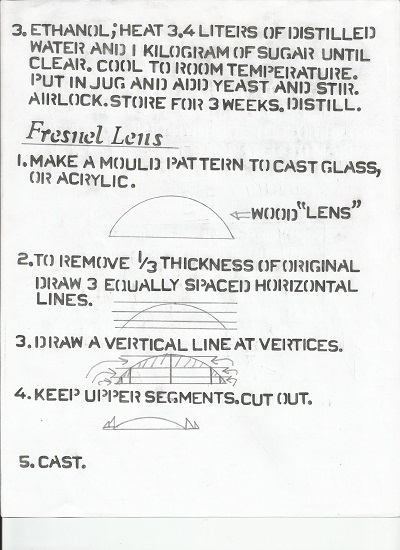 3. ETHANOL; HEAT 3.4 LITERS OF DISTILLED
WATER AND 1 KILOGRAM OF SUGAR UNTIL
CLEAR. COOL TO ROOM TEMPERATURE.
PUT IN JUG AND ADD YEAST AND STIR.
AIRLOCK. STORE FOR 3 WEEKS. DISTILL.
Fresnel Lens
1. MAKE A MOULD PATTERN TO CAST GLASS,
OR ACRYLIC.
WOOD "LENS"
2. TO REMOVE 1/3 THICKNESS OF ORIGINAL
DRAW 3 EQUALLY SPACED HORIZONTAL
LINES.
3. DRAW A VERTICAL LINE AT VERTICES.
4. KEEP UPPER SEGMENTS. CUT OUT.
5. CAST.